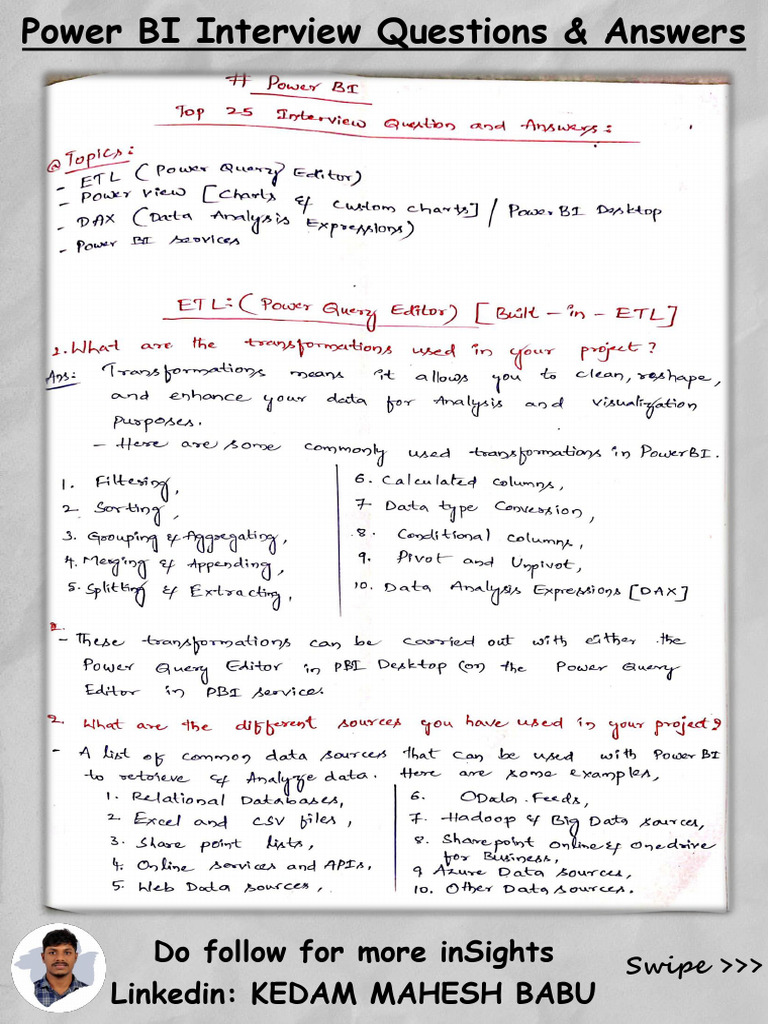 Power BI Interview Questions & Answers
# Power BI
Top 25 Interview Question and Answers:
@ Topics:
- ETL (Power Query Editor)
- Power view [Charts & custom charts] / PowerBI Desktop
- DAX (Data Analysis Expressions)
- Power BI services
ETL:(Power Query Editor) [Built-in-ETL]
1. What are the transformations used in your project?
Ans: Transformations means it allows you to clean, reshape,
and enhance your data for Analysis and visualization
purposes.
- Here are some commonly used transformations in PowerBI.
1. Filtering,
2. Sorting,
3. Grouping & Aggregating,
4. Merging & Appending,
5. Splitting & Extracting,
6. Calculated columns,
7 Data type Conversion,
8. Conditional columns,
9. Pivot and Unpivot,
10. Data Analysis Expressions [DAX]
- These transformations can be carried out with either the
Power Query Editor in PBI Desktop (or) the Power Query
Editor in PBI service.
2. What are the different sources you have used in your project?
- A list of common data sources that can be used with PowerBI
to retrieve & Analyze data. Here are some examples,
1. Relational Databases,
2. Excel and CSV files,
3. Share point lists,
4. Online services and APIs,
5. Web Data sources,
6. OData Feeds,
7. Hadoop & Big Data sources,
8. Sharepoint Online & Onedrive
for Business,
9 Azure Data sources,
10. Other Data sources.
Do follow for more inSights
Linkedin: KEDAM MAHESH BABU
Swipe >>>